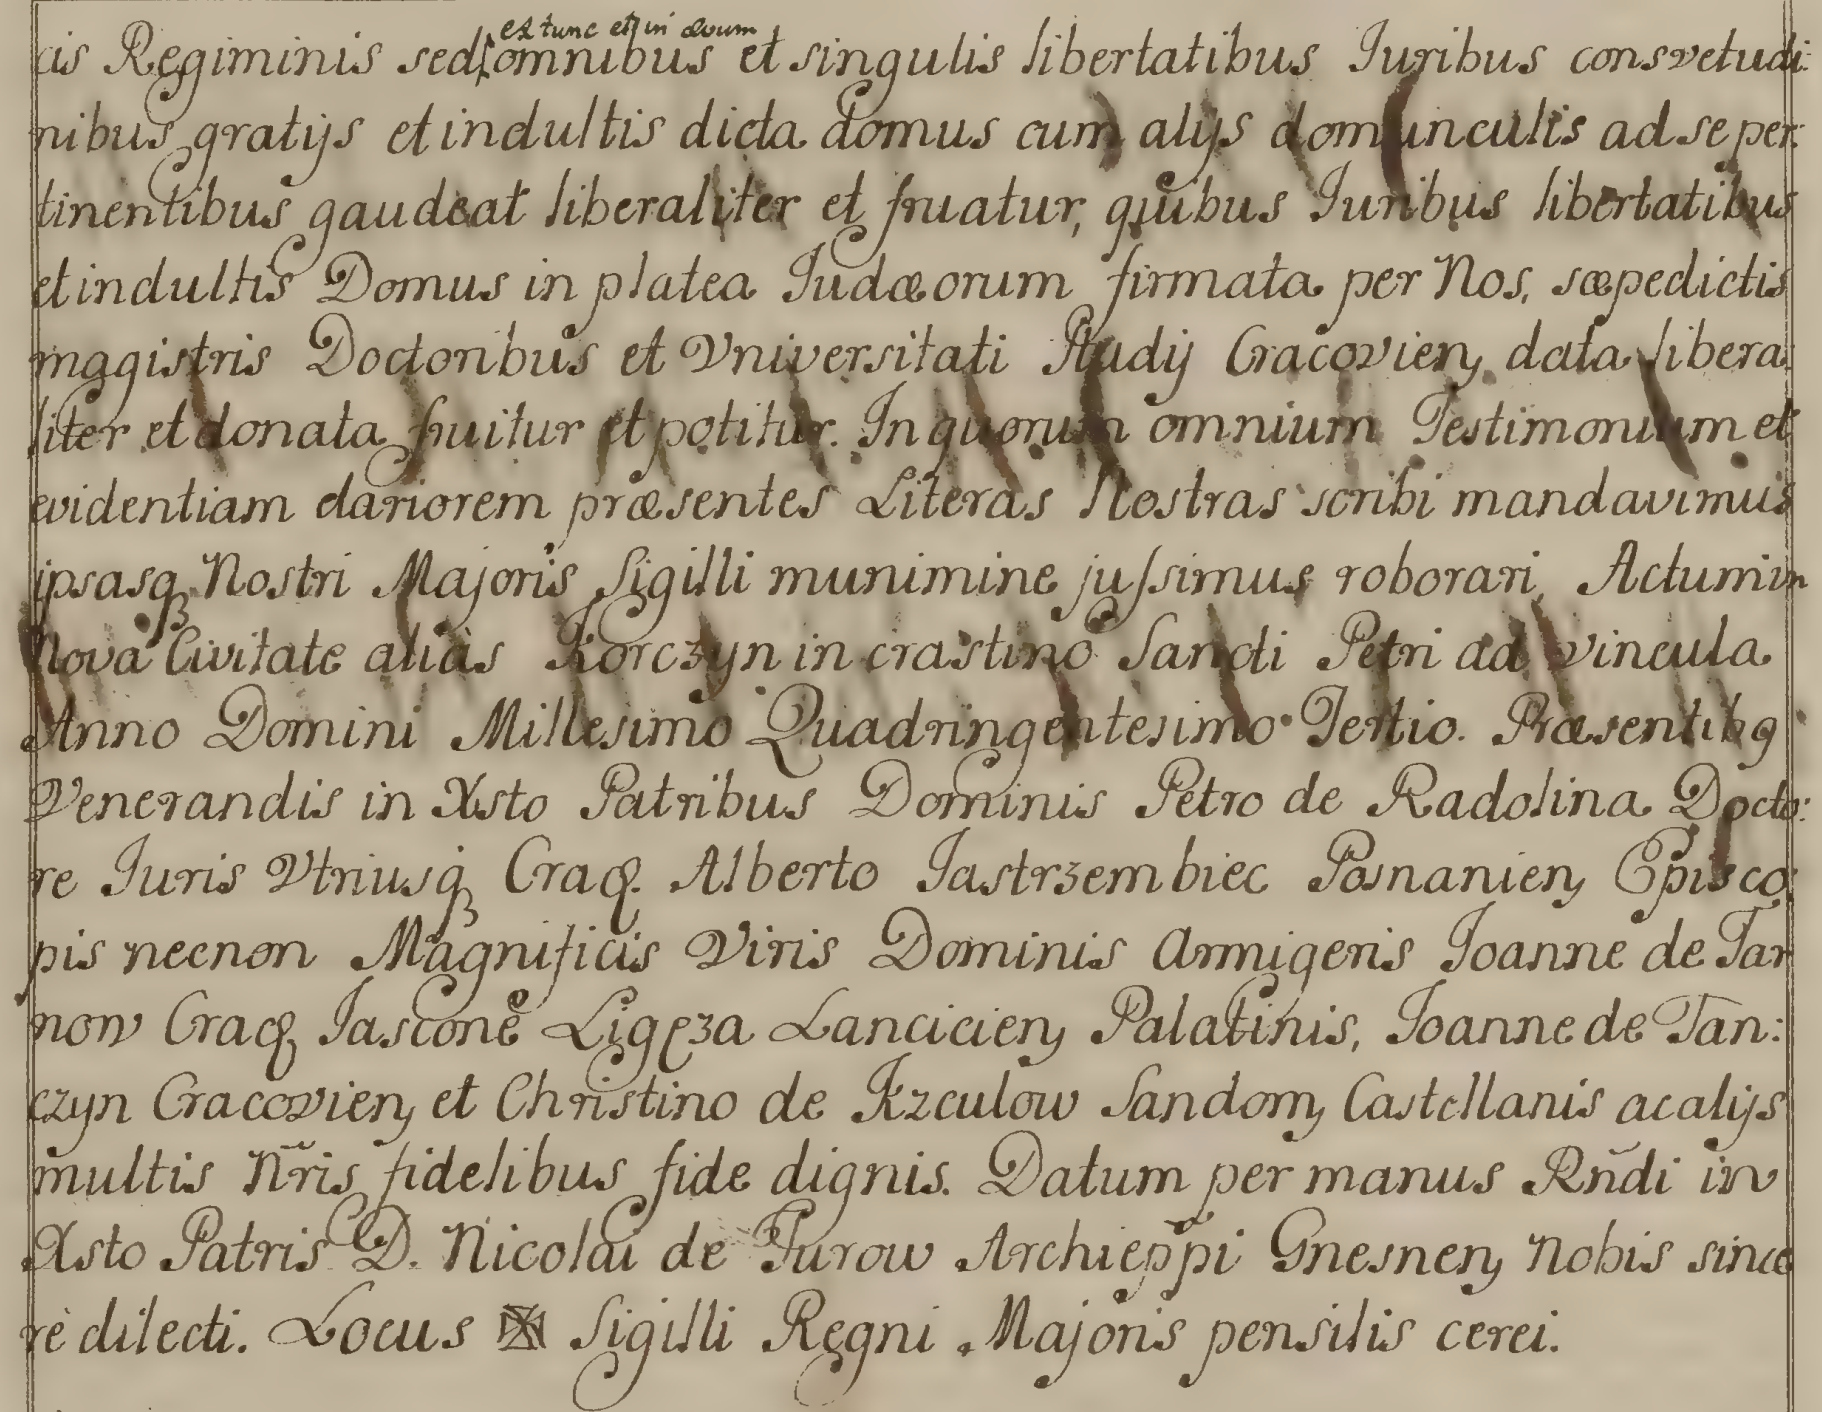 ex tunc et in ævum
cis Regiminis sed omnibus et singulis libertatibus Iuribus consvetudi:
nibus gratijs et indultis dicta domus cum alijs domunculis ad se per:
tinentibus gaudeat liberaliter et fruatur, quibus Iuribus libertatibus
et indultis Domus in platea Iudæorum firmata per Nos, sæpedictis
magistris Doctoribus et Vniversitati Studij Cracovien, data libera:
liter et donata fruitur et potitur. In quorum omnium Testimonium et
evidentiam clariorem præsentes Literas Nostras scribi mandavimus
ipsasq, Nostri Majoris Sigilli munimine jussimus roborari, Actum in
Nova Civitate aliàs Korczyn in crastino Sancti Petri ad vincula
Anno Domini Millesimo Quadringentesimo Tertio. Præsentibq
Venerandis in Xsto Patribus Dominis Petro de Radolina Docto:
re Iuris Vtriusq, Cracq. Alberto Iastrzembiec Posnanien, Episco:
pis necnon Magnificis Viris Dominis Armigeris Ioanne de Tar
now Cracq, Iascone Ligęza Lancicien, Palatinis, Ioanne de Tan:
czyn Cracovien, et Christino de Kzculow Sandom, Castellanis ac alijs
multis Nr̃is fidelibus fide dignis. Datum per manus Rñdi in
Xsto Patris D. Nicolai de Turow Archiep̃pi Gnesnen, Nobis since
rè dilecti. Locus Sigilli Regni Majoris pensilis cerei.